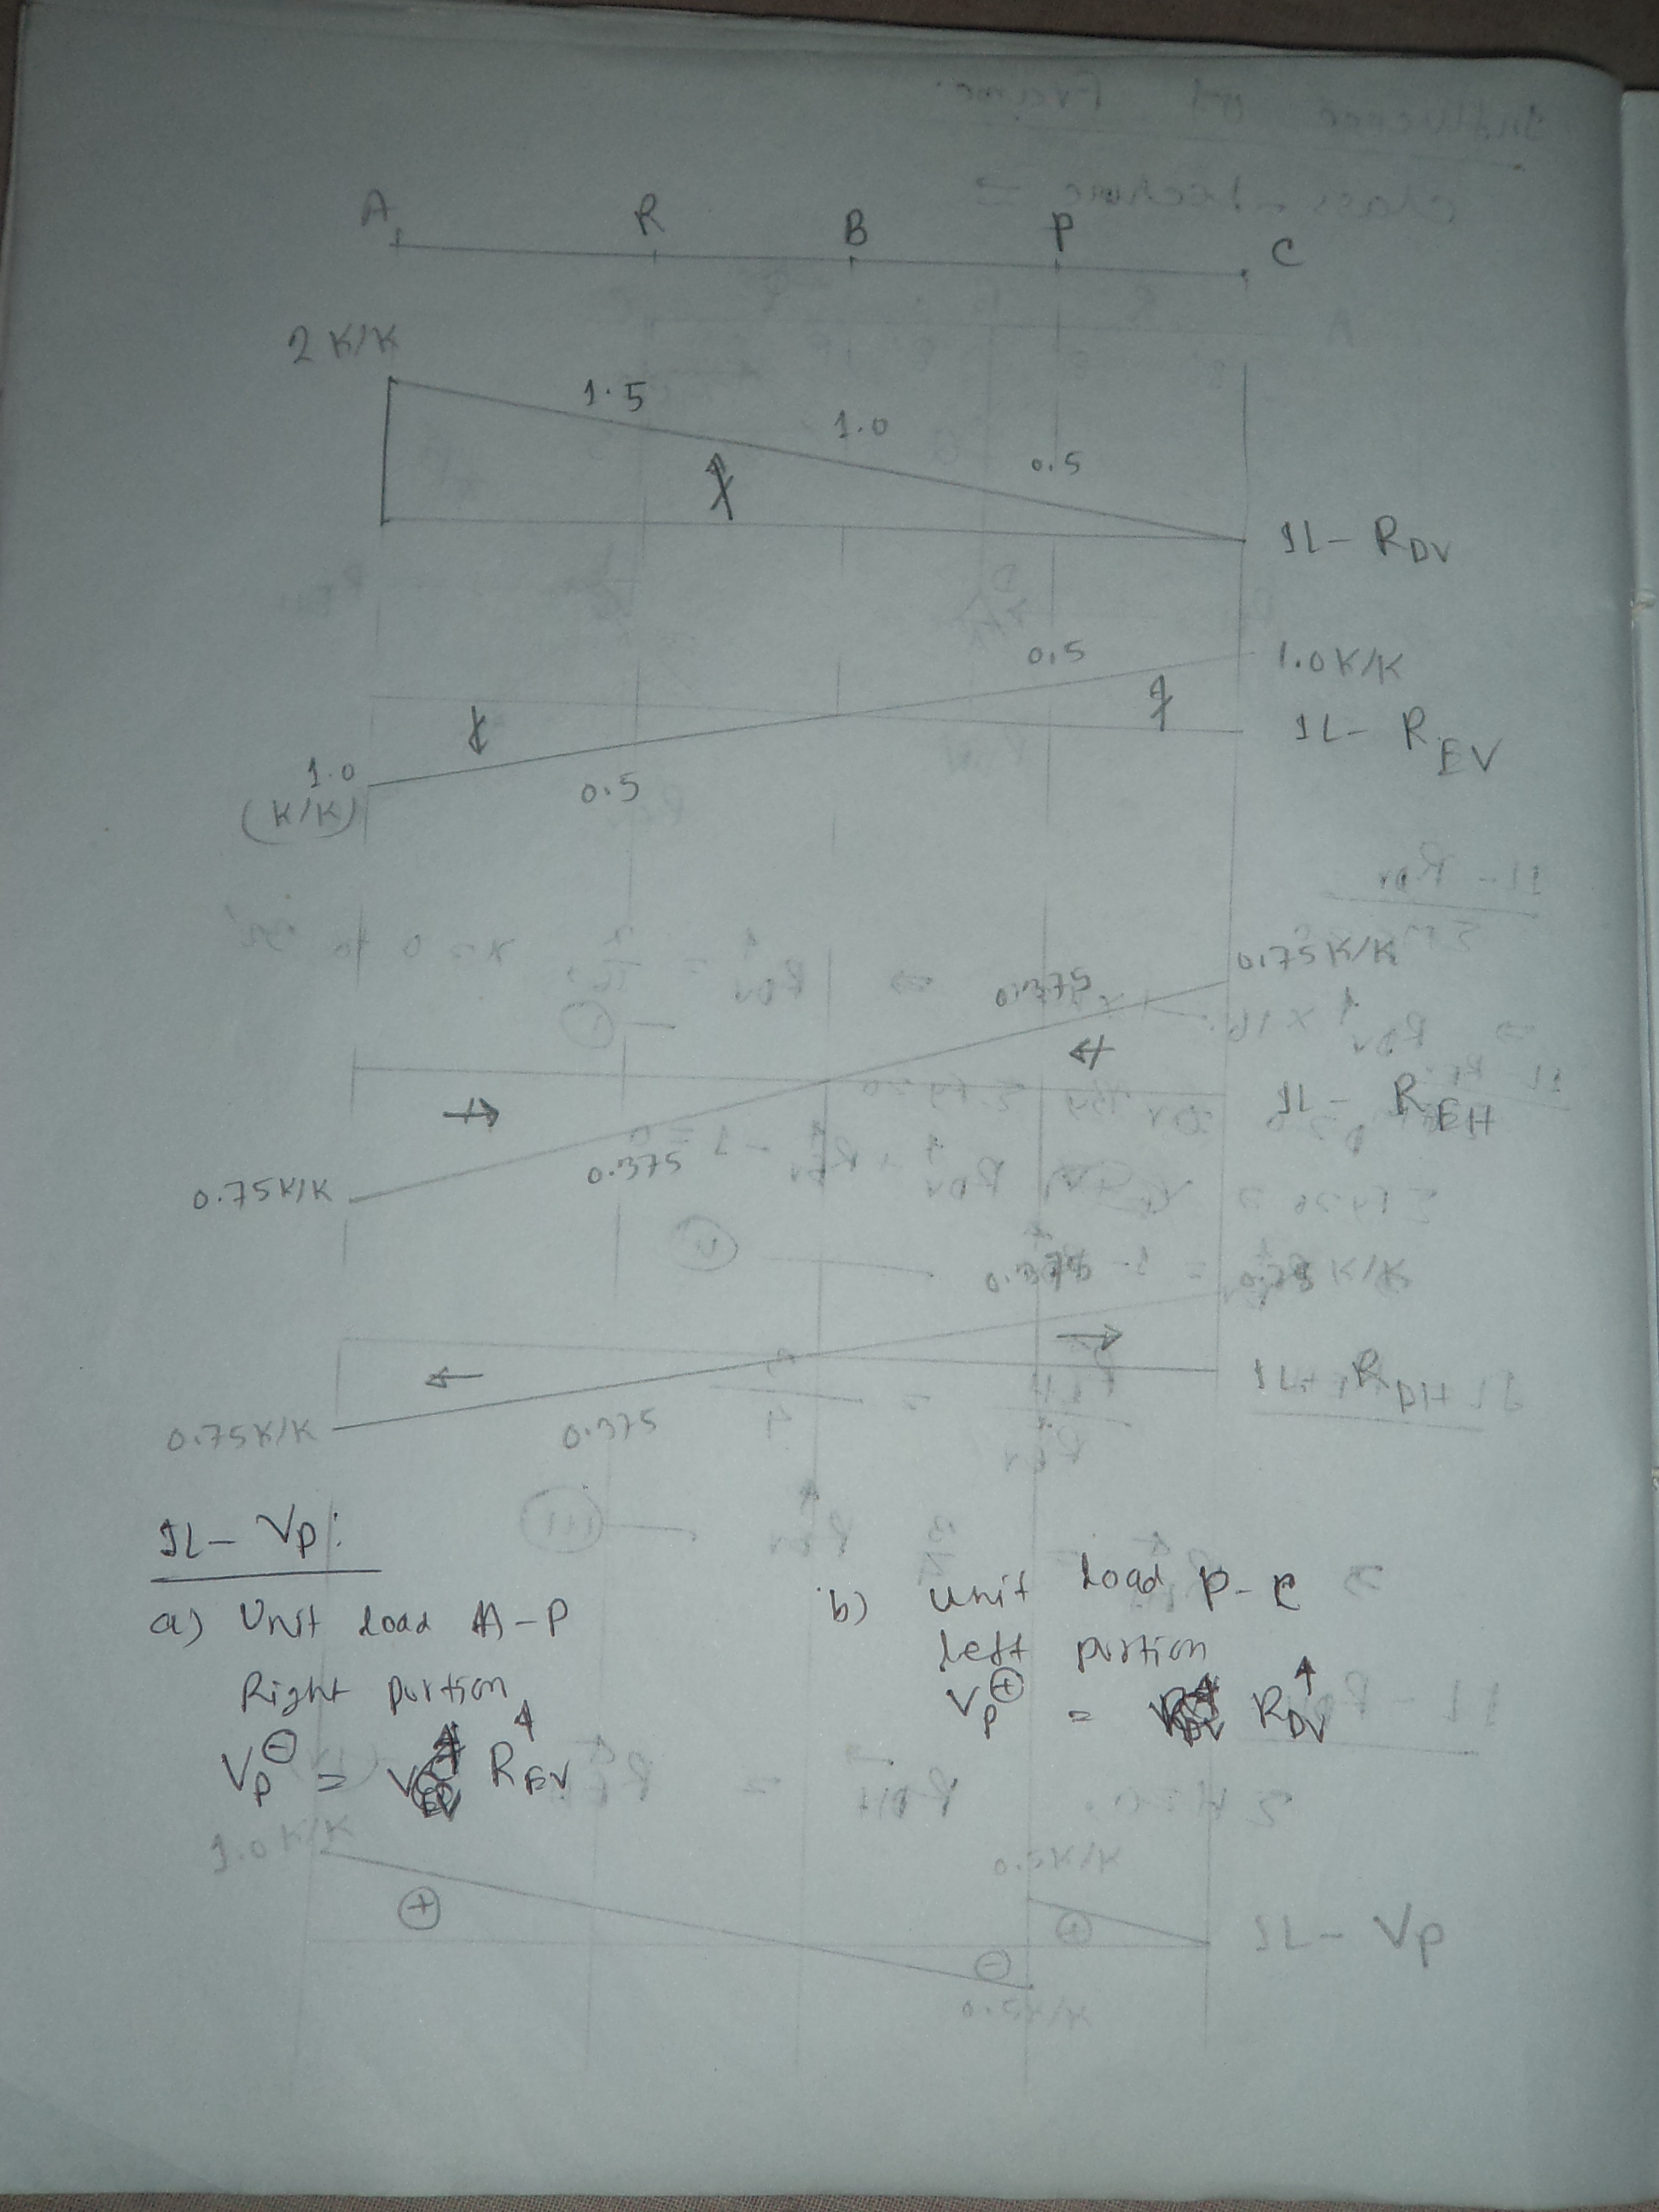 A R B P C
2 K/K
1.5
1.0
0.5
IL - R_DV
0.5
1.0 K/K
IL - R_EV
1.0
(K/K)
0.5
0.75 K/K
0.375
IL - R_EH
0.375
0.75 K/K
0.375
K/K
IL - R_DH
0.75 K/K
0.375
IL - Vp:
a) Unit load A-P
Right portion
Vp⊖ = R_EV↑
b) Unit load P-C
Left portion
Vp⊕ = R_DV↑
1.0 K/K
0.5 K/K
⊕
⊕
IL - Vp
⊖
0.5 K/K